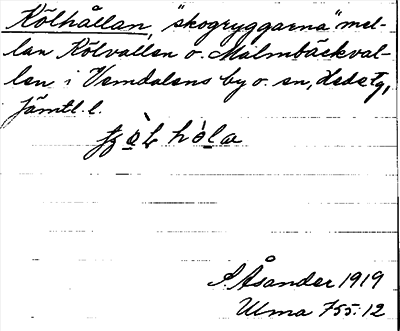 Kölhållan, "skogryggarna" mel-
lan Kölvallen o. Malmbäckval-
len i Vemdalens by o. sn,
Jämtl. l.
A. Åsander 1919
Ulma 755:12